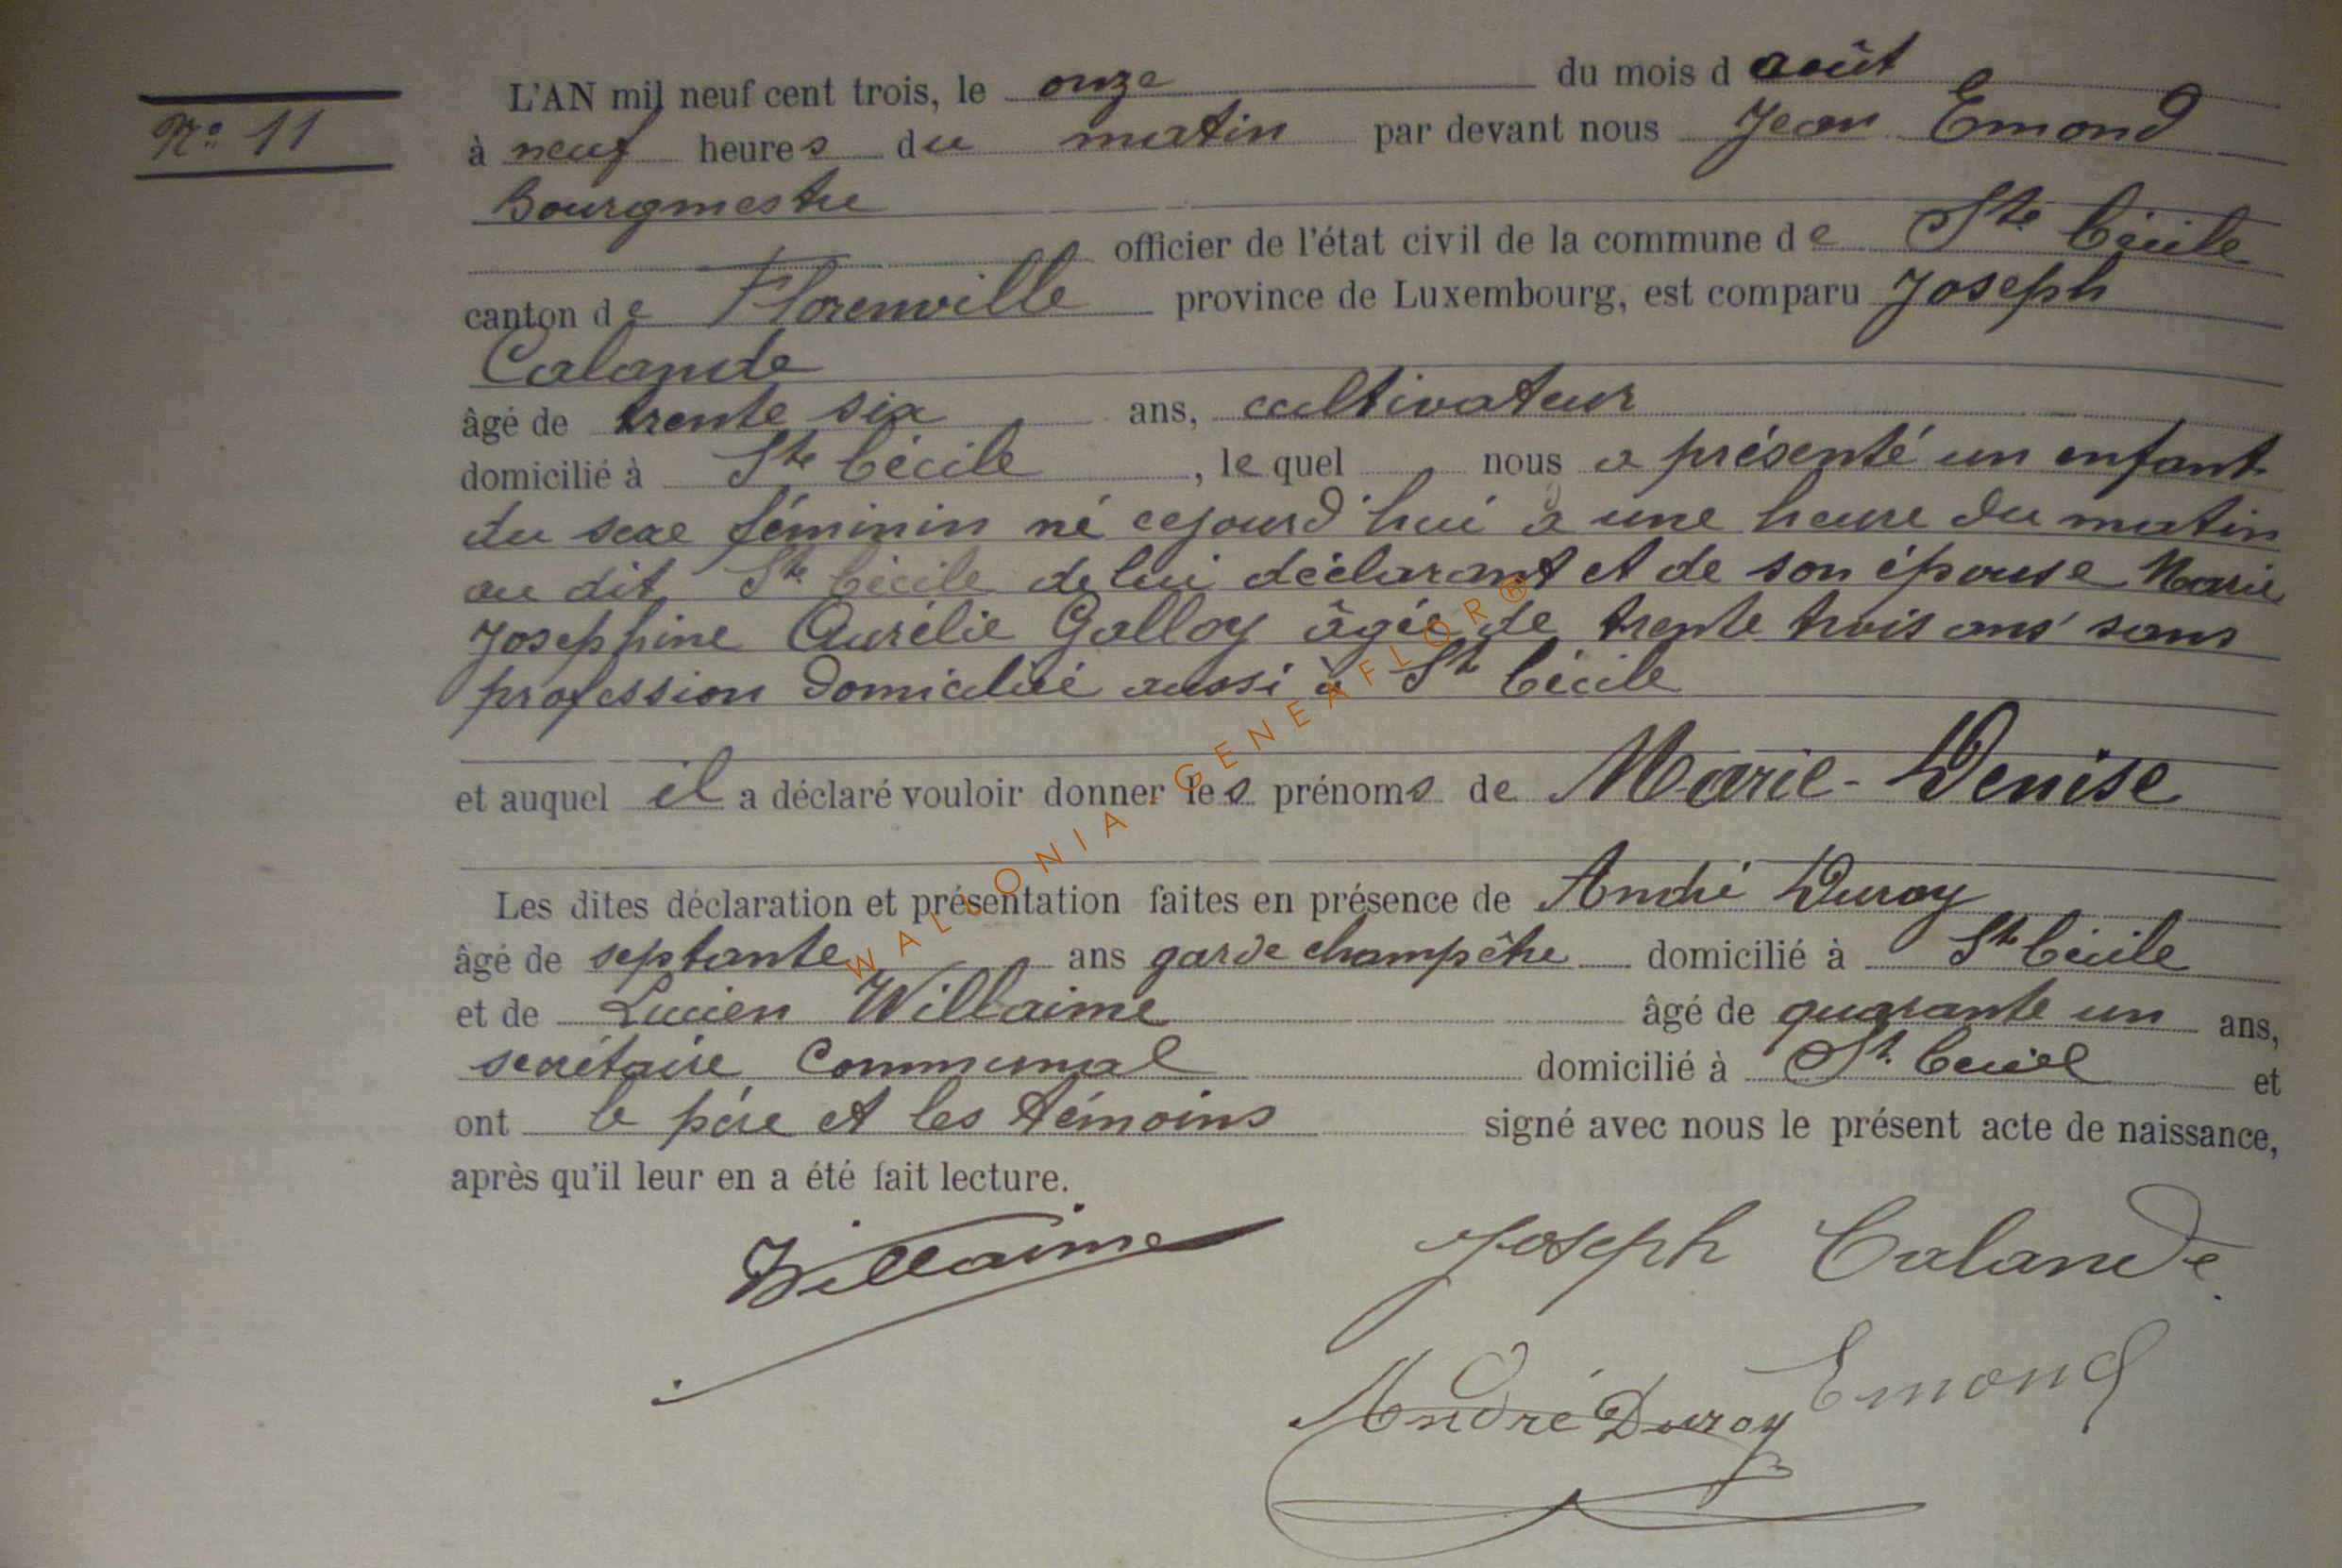 L'AN mil neuf cent trois, le onze du mois d août
N° 11
à neuf heures du matin par devant nous Jean Emond
Bourgmestre
officier de l'état civil de la commune de Ste Cécile
canton de Florenville province de Luxembourg, est comparu Joseph
Calande
âgé de trente six ans, cultivateur
domicilié à Ste Cécile, lequel nous a présenté un enfant
du sexe féminin né cejourd'hui à une heure du matin
au dit Ste Cécile de lui déclarant et de son épouse Marie
Josephine Aurélie Galloy âgée de trente trois ans sans
profession domicilié aussi à Ste Cécile
et auquel il a déclaré vouloir donner les prénoms de Marie-Denise
Les dites déclaration et présentation faites en présence de André Duroy
âgé de septante ans garde champêtre domicilié à Ste Cécile
et de Lucien Willaime âgé de quarante un ans,
secrétaire Communal domicilié à Ste Cécile et
ont le père et les témoins signé avec nous le présent acte de naissance,
après qu'il leur en a été fait lecture.
Willaime Joseph Calande
André Duroy Emond
WALLONIA GENEAFLOR®